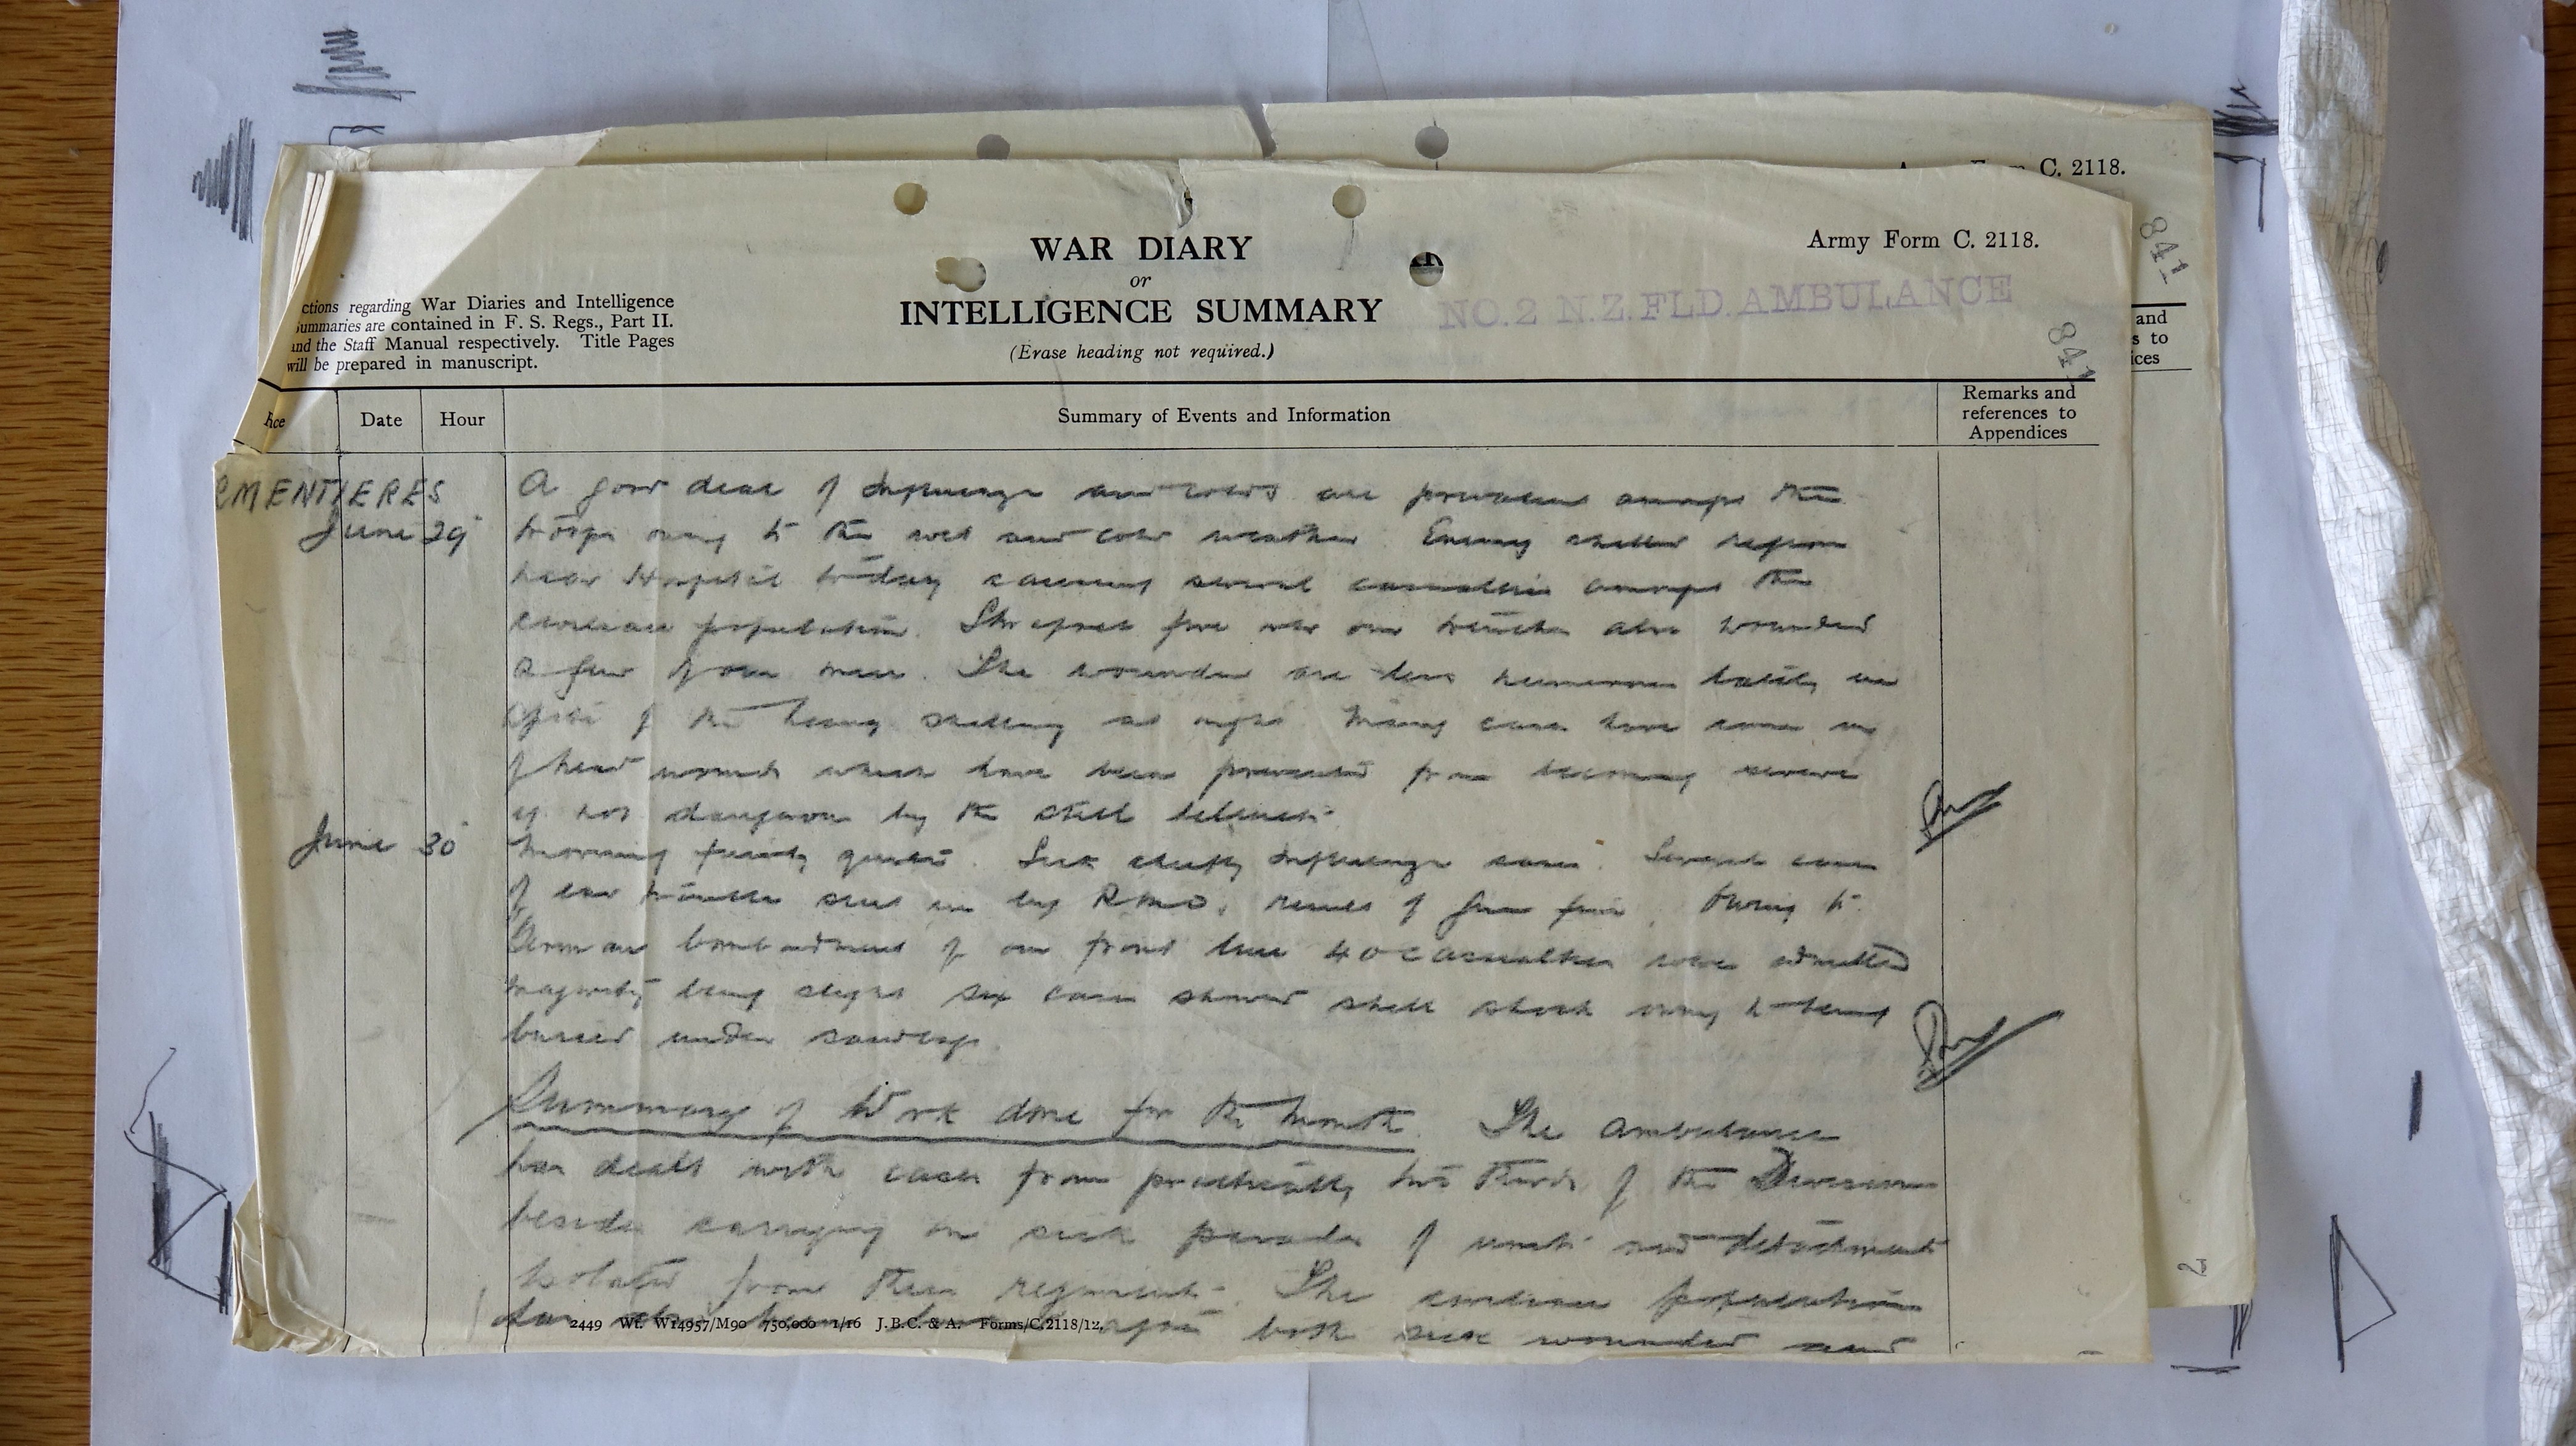 Army Form C. 2118.
WAR DIARY
or
INTELLIGENCE SUMMARY
(Erase heading not required.)
Army Form C. 2118.
NO. 2 N.Z. FLD. AMBULANCE
841
841
ctions regarding War Diaries and Intelligence
Summaries are contained in F. S. Regs., Part II.
and the Staff Manual respectively. Title Pages
will be prepared in manuscript.
and
s to
ices
Date
Hour
Summary of Events and Information
Remarks and
references to
Appendices
RMENTIERES
June 29
A good deal of Influenza and colds are prevalent amongst the
troops owing to the wet and cold weather. Enemy shelled region
near Hospital to-day causing several casualties amongst the
civilian population. Shrapnel fire over our trenches also wounded
a few of our men. The wounded are less numerous lately in
spite of the heavy shelling at night. Many cases have come in
of head wounds which have been prevented from becoming severe
if not dangerous by the steel helmets.
June 30
Morning fairly quiet. Sick chiefly Influenza cases. Several cases
of ear trouble sent in by RMO, result of gun fire. Owing to
German bombardment of our front line 40 casualties were admitted
majority being slight six cases showed shell shock owing to being
buried under sandbags.
Summary of Work done for the Month. The Ambulance
has dealt with cases from practically two thirds of the Division
besides carrying on sick parades of units and detachments
isolated from their regiments. The civilian population
has also been both sick wounded and
2449 Wt. W14957/M90 750,000 1/16 J.B.C. & A. Forms/C.2118/12.
2